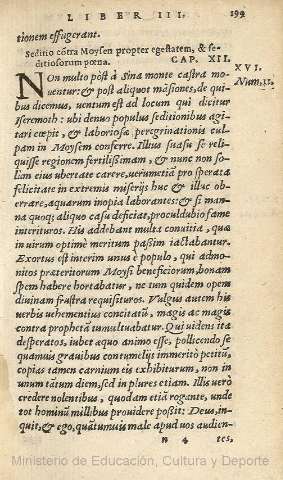 LIBER III. 199
tionem effugerant.
Seditio cõtra Moysen propter egestatem, & se-
ditiosorum pœna. CAP. XII.
XVI.
Num. 11.
NOn multo pòst à Sina monte castra mo-
uentur: & post aliquot mãsiones, de qui-
bus dicemus, uentum est ad locum qui dicitur
Iseremoth: ubi denuo populus seditionibus agi-
tari cœpit, & laboriosæ peregrinationis cul-
pam in Moysem conferre. Illius suasu se reli-
quisse regionem fertilissimam, & nunc non so-
lùm eius ubertate carere, uerumetiã pro sperata
felicitate in extremis miserijs huc & illuc ob-
errare, aquarum inopia laborantes: & si man-
na quoq; aliquo casu deficiat, proculdubio fame
interituros. His addebant multa conuitia, quæ
in uirum optimè meritum passim iactabantur.
Exortus est interim unus è populo, qui admo-
nitos præteritorum Moysi beneficiorum, bonam
spem habere hortabatur, ne tum quidem opem
diuinam frustra requisituros. Vulgus autem his
uerbis uehementius concitatũ, magis ac magis
contra prophetã tumultuabatur. Qui uidens ita
desperatos, iubet æquo animo esse, pollicendo se
quamuis grauibus contumelijs immeritò petitũ,
copias tamen carnium eis exhibiturum, non in
unum tãtum diem, sed in plures etiam. Illis uerò
credere nolentibus, quodam etiã rogante, unde
tot hominũ millibus prouidere possit: Deus, in-
quit, & ego, quãtumuis male apud uos audien-
n 4 tes,
Ministerio de Educación, Cultura y Deporte